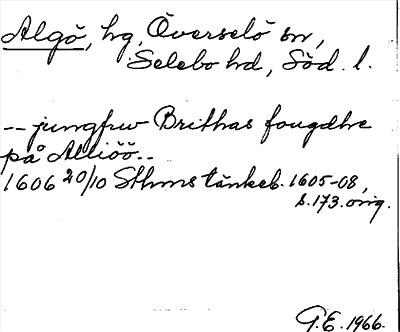 Algö, hg, Överselö sn,
Selebo hd, Söd. l.
-- jungfrw Brithas fougdhe
på Alliöö --
1606 20/10 Sthms tänkeb. 1605-08,
s. 173. orig.
G.E. 1966.